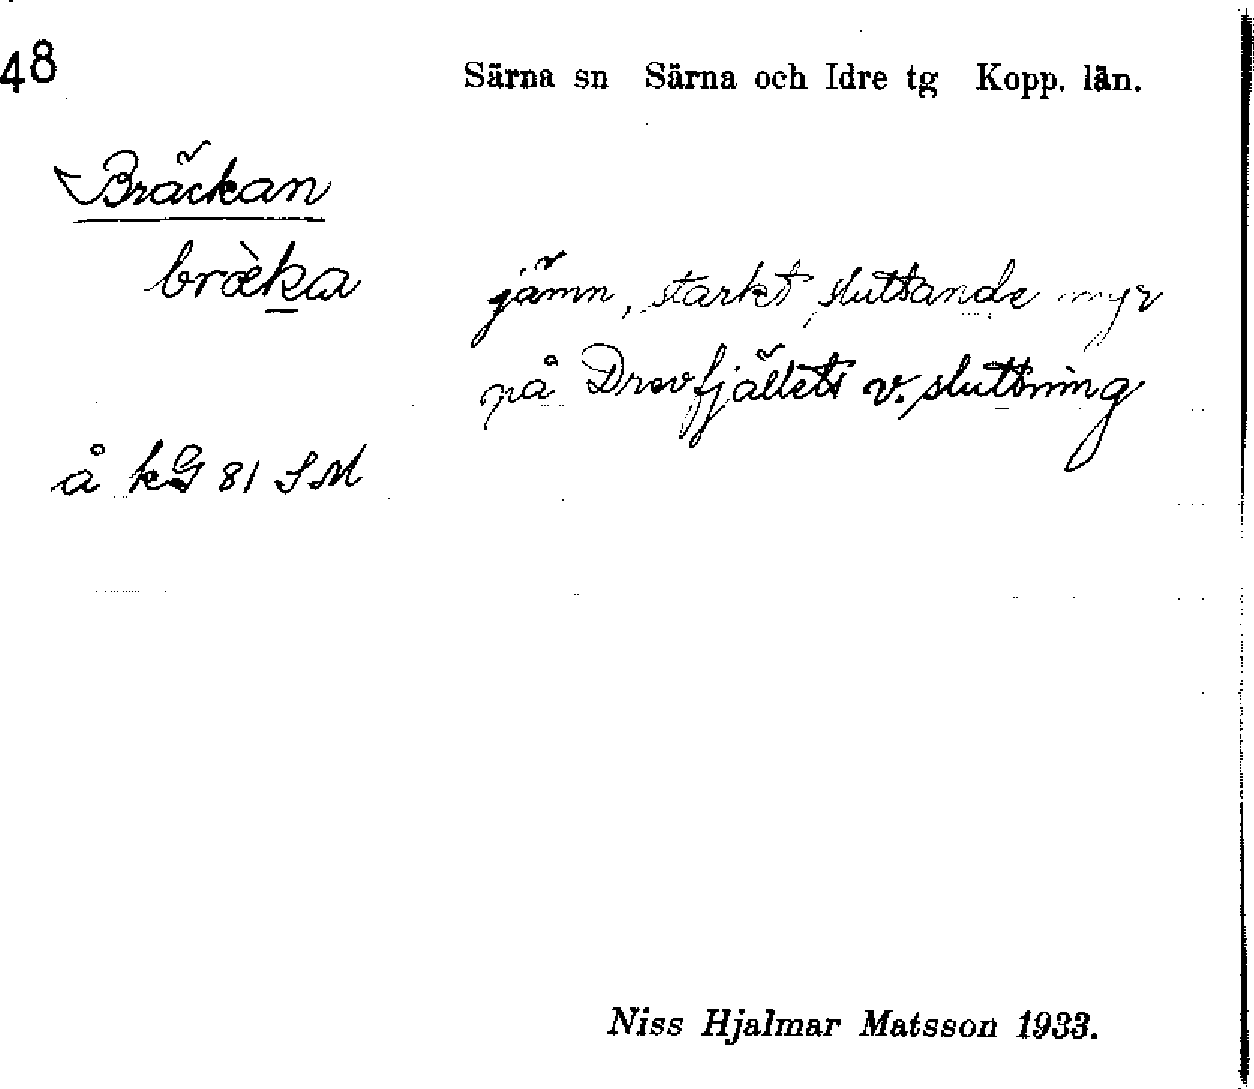 48
Särna sn Särna och Idre tg Kopp. län.
Bräckan
bræ̀ka
jämn, starkt sluttande myr
på Drevfjällets v. sluttning
å kG 81 SM
Niss Hjalmar Matsson 1933.